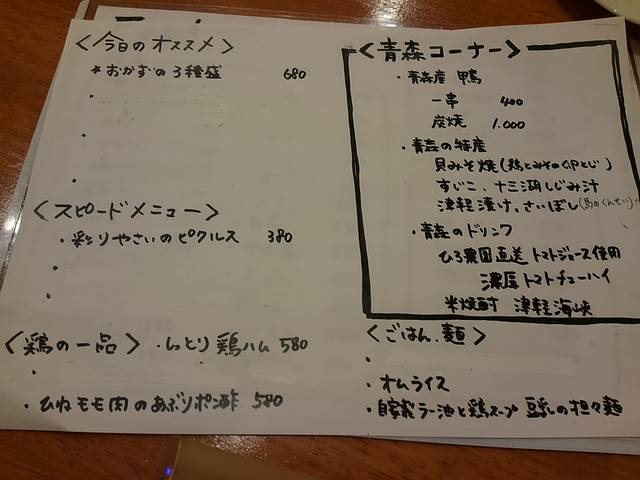 <今日のオススメ>
*おかずの3種盛 680
<スピードメニュー>
・彩りやさいのピクルス 380
<鶏の一品> ・しっとり鶏ハム 580
・ひねモモ肉のあぶりポン酢 580
<青森コーナー>
・青森産 鴨
一串 400
炭焼 1.000
・青森の特産
貝みそ焼(鶏とみその卵とじ)
すじこ、十三湖しじみ汁
津軽漬け、さいぼし(馬のくんせい)
・青森のドリンク
ひろ農園直送 トマトジュース使用
濃厚トマトチューハイ
米焼酎 津軽海峡
<ごはん、麺>
・オムライス
・自家製ラー油と鶏スープ 豆乳の担々麺